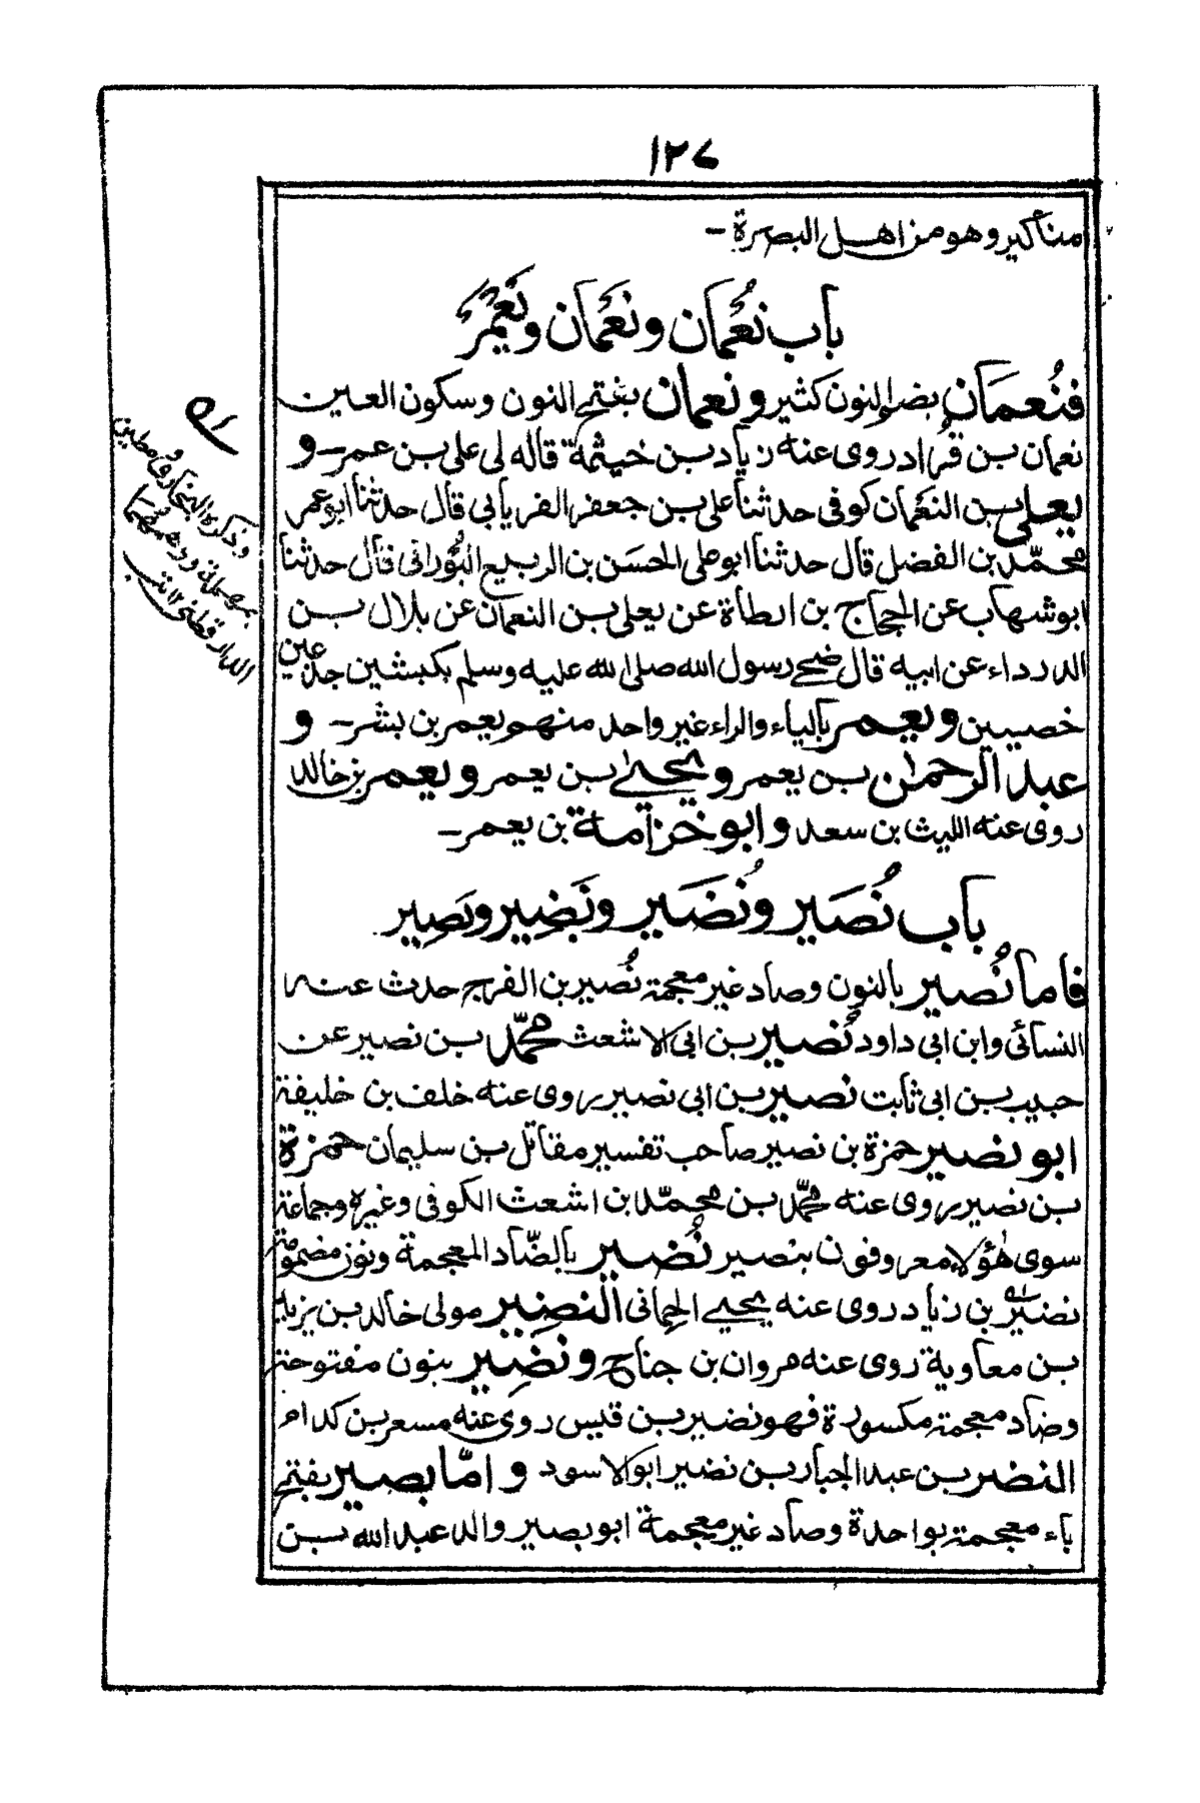 ١٢٧
مناكير وهو من اهل البصرة -
باب نُعْمَان ونَعْمَان ونَعْمُر
فنُعمَان بضم النون كثير ونعمان بفتح النون وسكون العين
نعمان بن قُراد روى عنه زياد بن خيثمة قاله لى على بن عمر - و
يعلى بن النَعْمَان كوفى حدثنا على بن جعفر الفريابي قال حدثنا ابو عمر
محمّد بن الفضل قال حدثنا ابو على الحسَن بن الربيع البُورانى قال حدثنا
ابو شهاب عن الحجاج بن ارطاة عن يعلى بن النعمان عن بلال بن
الدرداء عن ابيه قال ضحى رسول الله صلى الله عليه وسلم بكبشين جذعين
خصيين ويعمر بالياء والراء غير واحد منهم يعمر بن بشر - و
عبد الرحمان بن يعمر ويحيى بن يعمر ويعمر بن خالد
روى عنه الليث بن سعد وابو خزامة بن يعمر -
باب نُصَير ونُضَير ونَضِير ونَصِير
فاما نُصير بالنون وصاد غير معجمة نُصير بن الفرج حدث عنه
النسائى وابن ابى داود نُصير بن ابى الاشعث محمّد بن نصير عن
حبيب بن ابى ثابت نصير بن ابى نصير روى عنه خلف بن خليفة
ابو نصير حمزة بن نصير صاحب تفسير مقاتل بن سليمان حمزة
بن نصير روى عنه محمّد بن محمّد بن اشعث الكوفى وغيره وجماعة
سوى هؤلاء معروفون بنصير نُضير بالضّاد المعجمة ونون مضمومة
نضير بن زياد روى عنه يحيى الحمانى النضير مولى خالد بن يزيد
بن معاوية روى عنه مروان بن جناح ونضِير بنون مفتوحة
وضاد معجمة مكسورة فهو نضير بن قيس روى عنه مسعر بن كدام
النضر بن عبد الجبار بن نضير ابو الاسود وامّا بصير بفتح
باء معجمة بواحدة وصاد غير معجمة ابو بصير والد عبد الله بن
وذكره البخارى ومطين
الدارقطنى